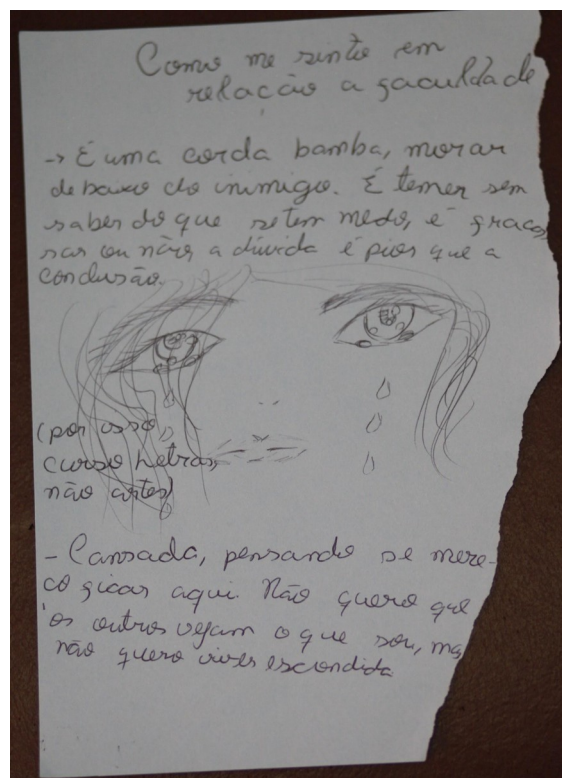 Como me sinto em
relação a faculdade
→ É uma corda bamba, morar
debaixo do inimigo. É temer sem
saber do que se tem medo, é fracas
sar ou não, a dúvida é pior que a
conclusão.
(por isso
curso Letras,
não artes)
- Cansada, pensando se mere-
ço ficar aqui. Não quero que
os outros vejam o que sou, mas
não quero viver escondida